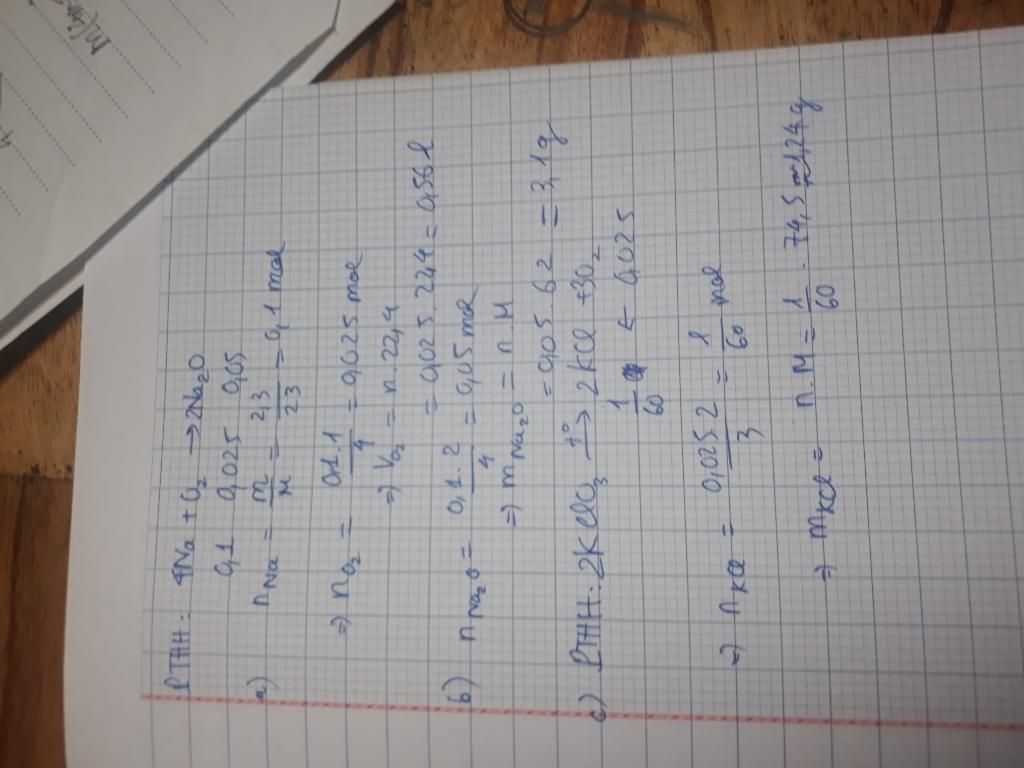 PTHH: 4Na + O₂ → 2Na₂O
0,1 0,025 0,05
a) n_Na = m/M = 2,3/23 = 0,1 mol
=> n_O₂ = 0,1.1/4 = 0,025 mol
=> V_O₂ = n.22,4
= 0,025.22,4 = 0,56 l
b) n_Na₂O = 0,1.2/4 = 0,05 mol
=> m_Na₂O = n.M
= 0,05.62 = 3,1g
c) PTHH: 2KClO₃ –t°→ 2KCl + 3O₂
1/60 ← 0,025
=> n_KCl = 0,025.2/3 = 1/60 mol
=> m_KCl = n.M = 1/60 . 74,5 ≈ 1,24g